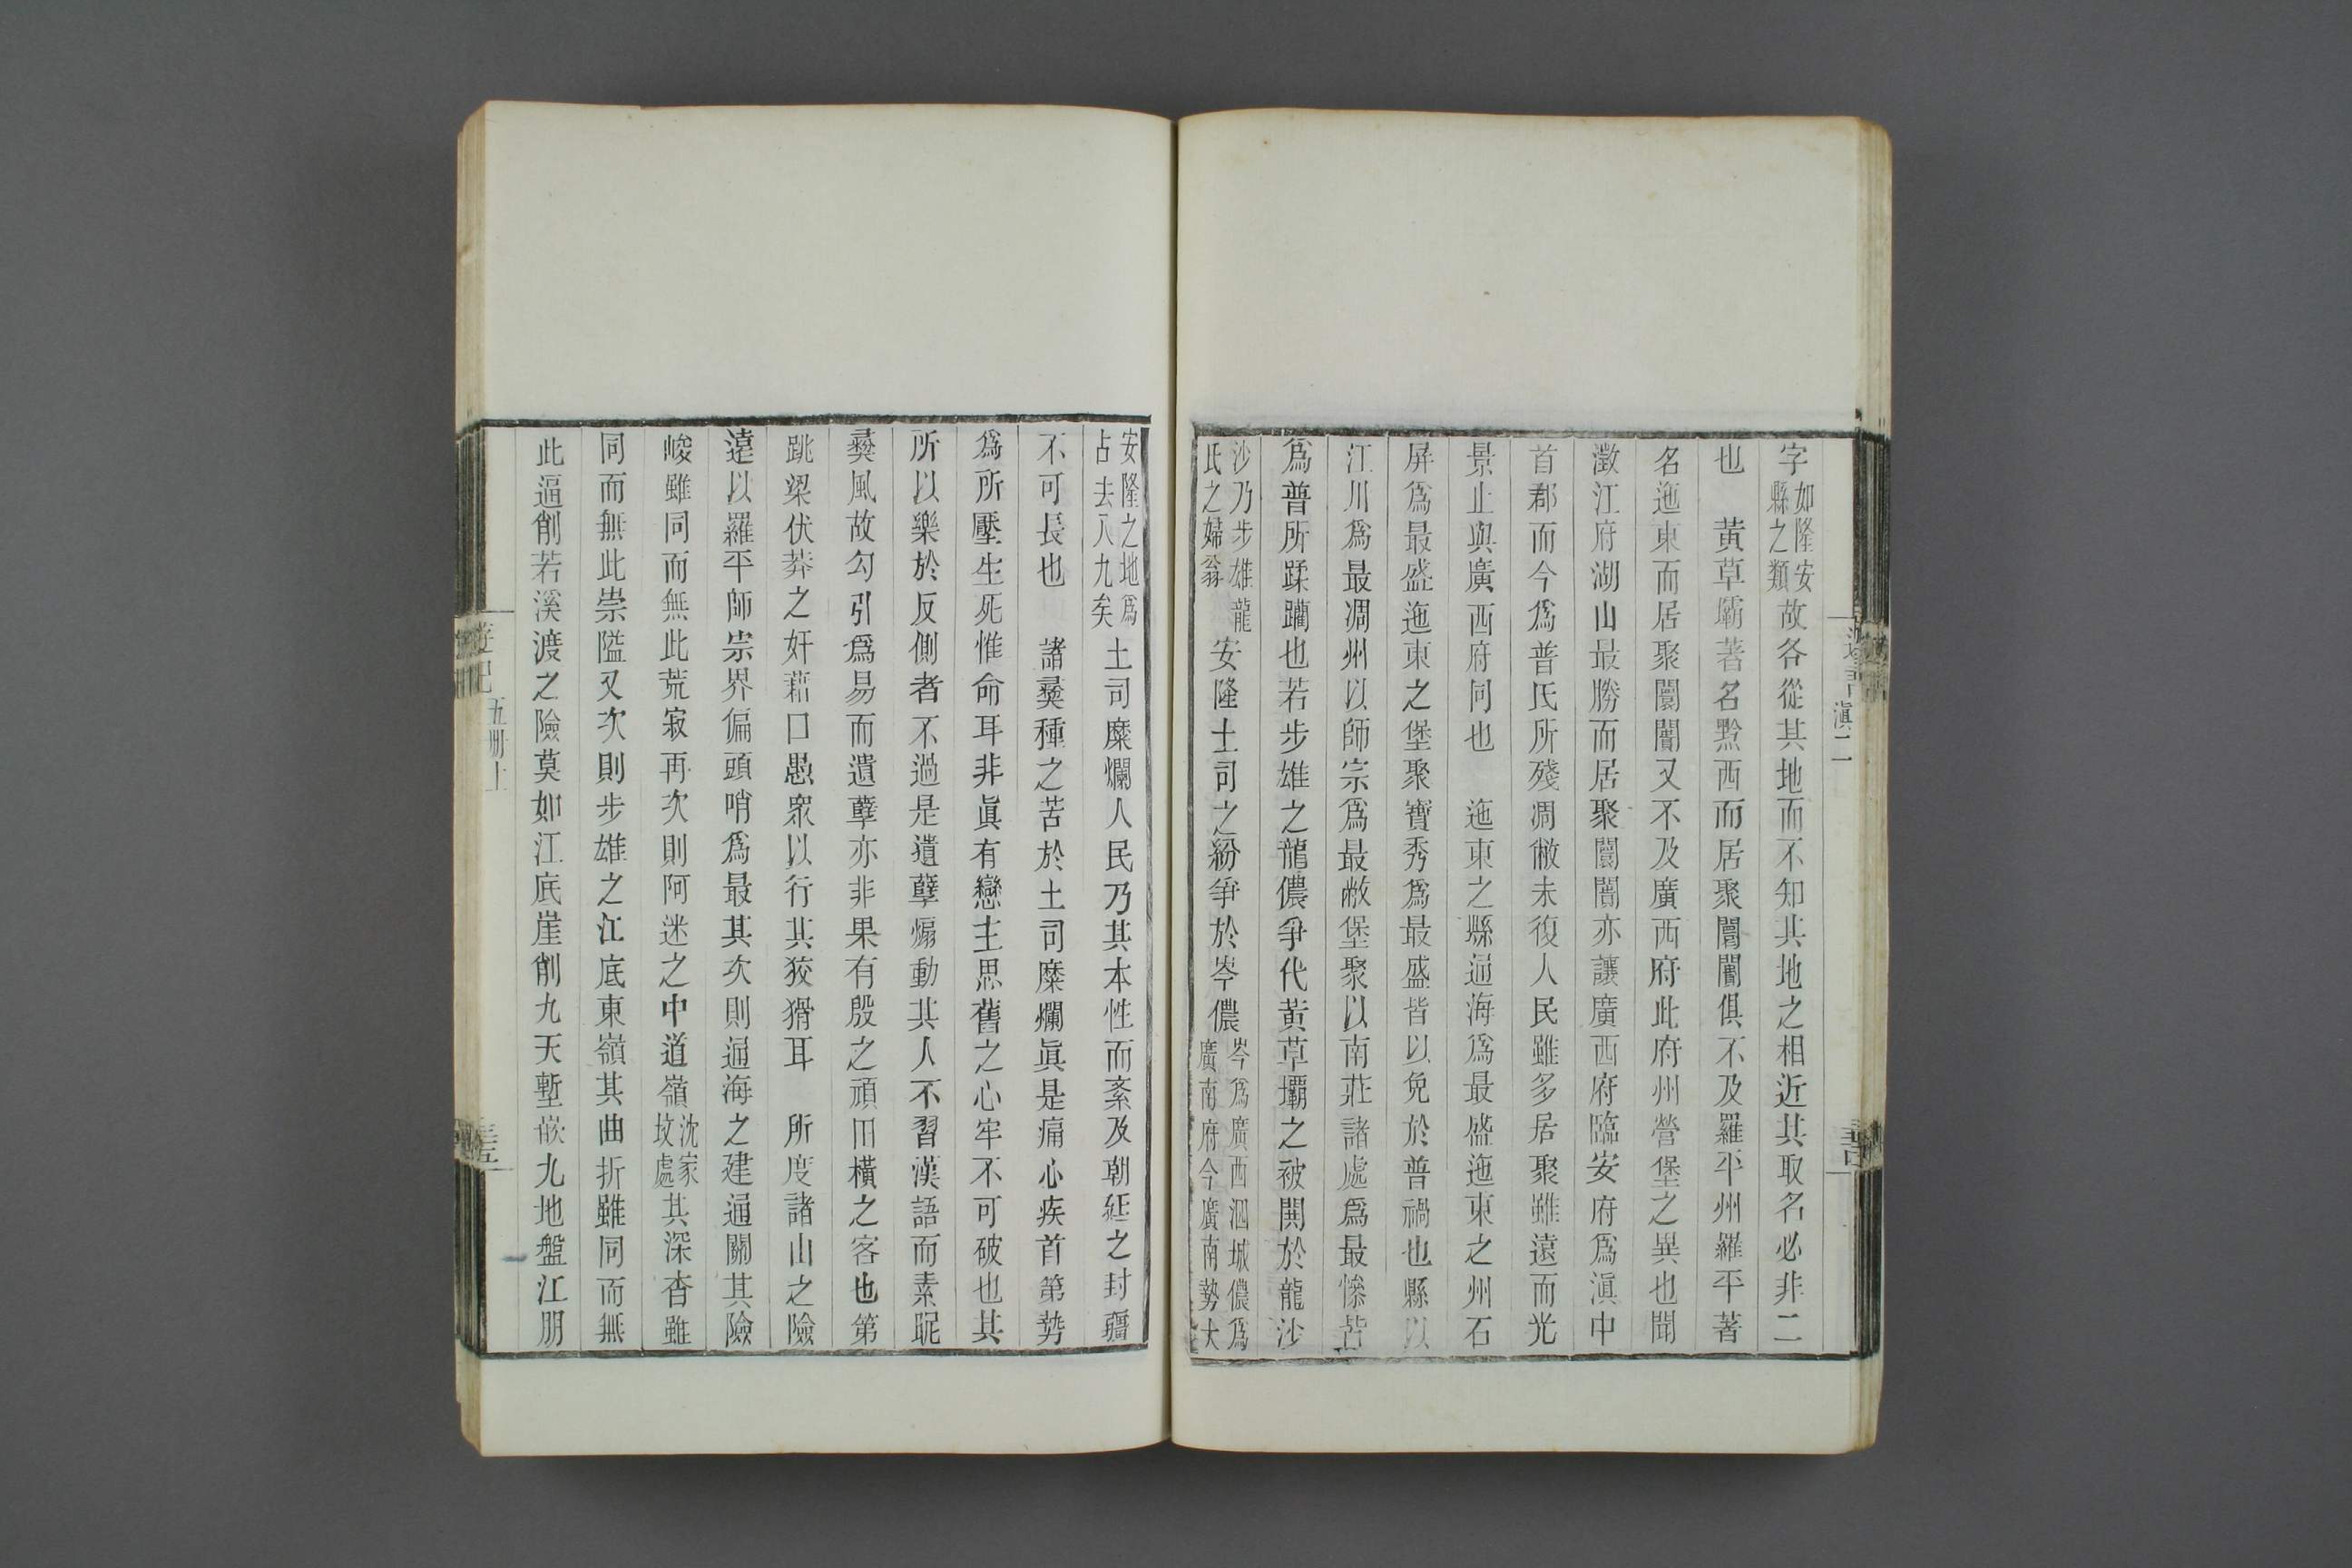 字如隆安縣之類故各從其地而不知其地之相近其取名必非二
也　黃草壩著名黔西而居聚闤闠俱不及羅平州羅平著
名迤東而居聚闤闠又不及廣西府此府州營堡之異也聞
澂江府湖山最勝而居聚闤闠亦讓廣西府臨安府爲滇中
首郡而今爲普氏所殘凋敝未復人民雖多居聚雖遠而光
景止與廣西府同也　迤東之縣通海爲最盛迤東之州石
屏爲最盛迤東之堡聚寶秀爲最盛皆以免於普禍也縣以
江川爲最凋州以師宗爲最敝堡聚以南莊諸處爲最慘皆
爲普所蹂躪也若步雄之龍儂爭代黃草壩之被閧於龍沙
沙乃步雄龍氏之婦翁安隆土司之紛爭於岑儂岑爲廣西泗城儂爲廣南府今廣南勢大
安隆之地爲占去八九矣土司糜爛人民乃其本性而紊及朝廷之封疆
不可長也　諸彞種之苦於土司糜爛眞是痛心疾首第勢
爲所壓生死惟命耳非眞有戀主思舊之心牢不可破也其
所以樂於反側者不過是遺孽煽動其人不習漢語而素昵
彞風故勾引爲易而遺孽亦非果有殷之頑田橫之客也第
跳梁伏莽之奸藉口愚衆以行其狡猾耳　所度諸山之險
遠以羅平師宗界偏頭哨爲最其次則通海之建通關其險
峻雖同而無此荒寂再次則阿迷之中道嶺沈家坟處其深杳雖
同而無此崇隘又次則步雄之江底東嶺其曲折雖同而無
此逼削若溪渡之險莫如江底崖削九天塹嵌九地盤江朋
滇二
遊記
五冊上